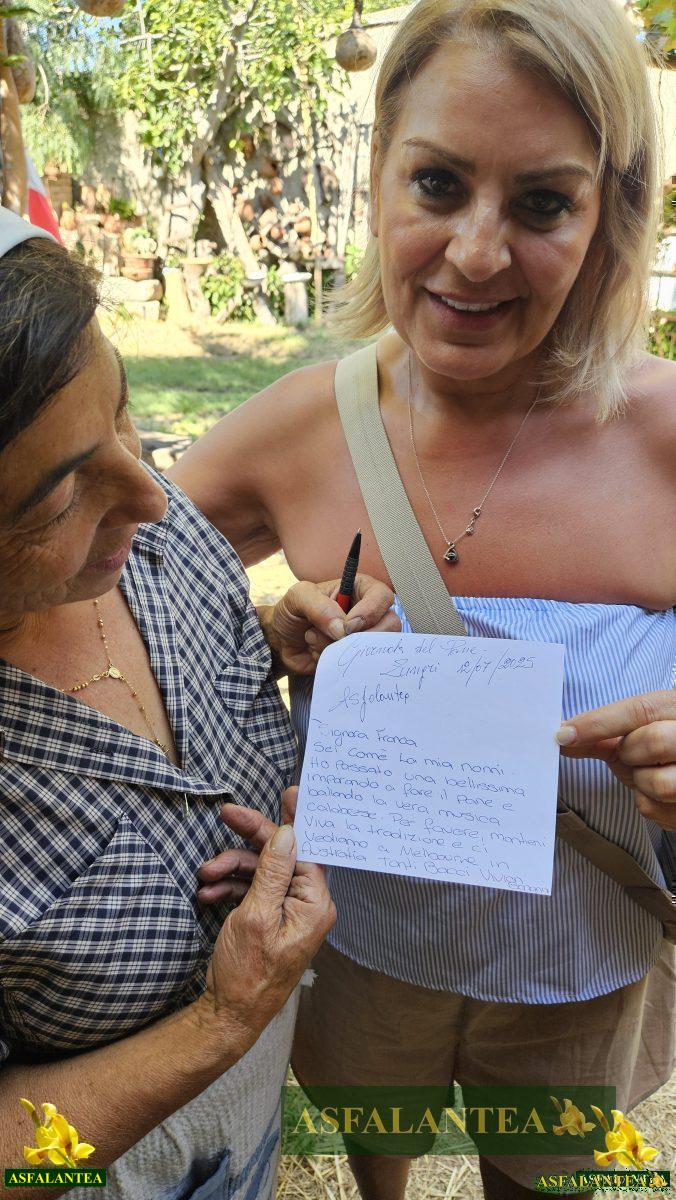 Giornata del Pane.
Zungri 12/07/2025
Asfalantea
Signora Franca
Sei come la mia nonni.
Ho passato una bellissima
imparando a fare il pane e
ballando la vera musica
calabrese. Per favore, mantieni
Viva la tradizione e ci
vediamo a Melbourne in
Australia Tanti Bacci Vivian
ASFALANTEA
ASFALANTEA
ASFALANTEA